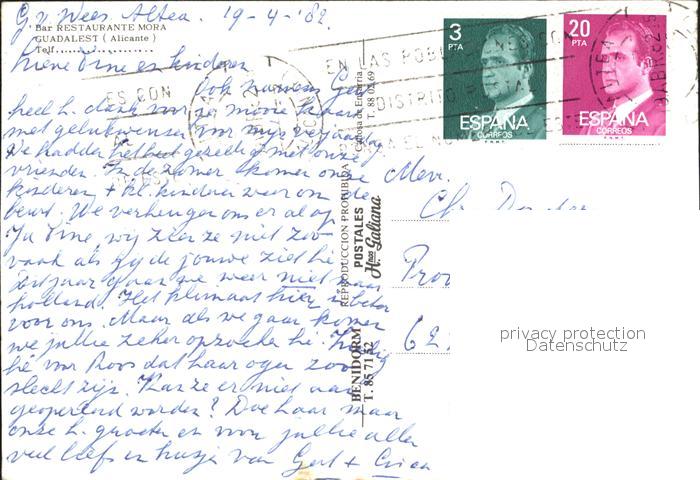 G. v. Wees. Altea. 19-4-'82.
Bar RESTAURANTE MORA
GUADALEST (Alicante)
Telf.
Lieve Dine en kinderen
Ook namens Ger
heel h. dank voor je mooie kaart
met gelukwensen voor mijn verjaardag
We hadden het heel gezellig met onze
vrienden. In de zomer komen onze
kinderen + kl. kinderen weer om de
beurt. We verheugen ons er al op
Ja Dine, wij zien ze niet zoo
vaak als jij de jouwe ziet hè
Dit jaar gaan we weer niet naar
holland. Het klimaat hier is beter
voor ons. Maar als we gaan komen
we jullie zeker opzoeken h.
hè voor Roos dat haar ogen zoo
slecht zijn. Kan ze er niet aan
geopereerd worden? Doe haar maar
onze h. groeten en voor jullie allen
veel liefs en kusjes van Gert +
Mevr.
Ch.
62
3 PTA
ESPAÑA
CORREOS
20 PTA
ESPAÑA
CORREOS
EN LAS
DISTRITO
ES CON
Callosa de Ensarria
REPRODUCCION PROHIBIDA
POSTALES
Hnos Galiana
BENIDORM
T. 85 71 52
privacy protection
Datenschutz